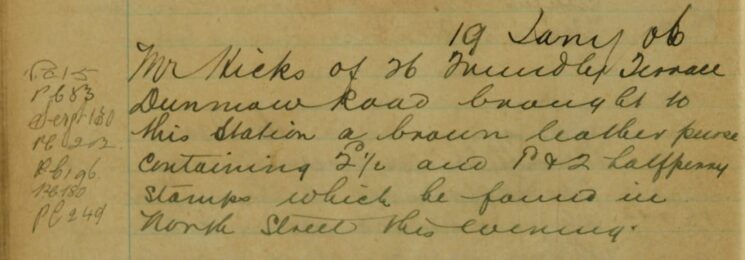 19 Jany 06
Mr Hicks of 26 Trundley Terrace
Dunmow Road brought to
this Station a brown leather purse
containing 2/- and 2 halfpenny
stamps which he found in
North Street this evening.
PC 15
PC 83
Sergt 130
PC 202
PC 196
PC 180
PC 249